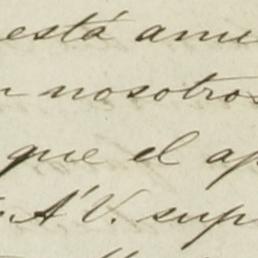 está ame
nosotros
que el ap
A V. sup